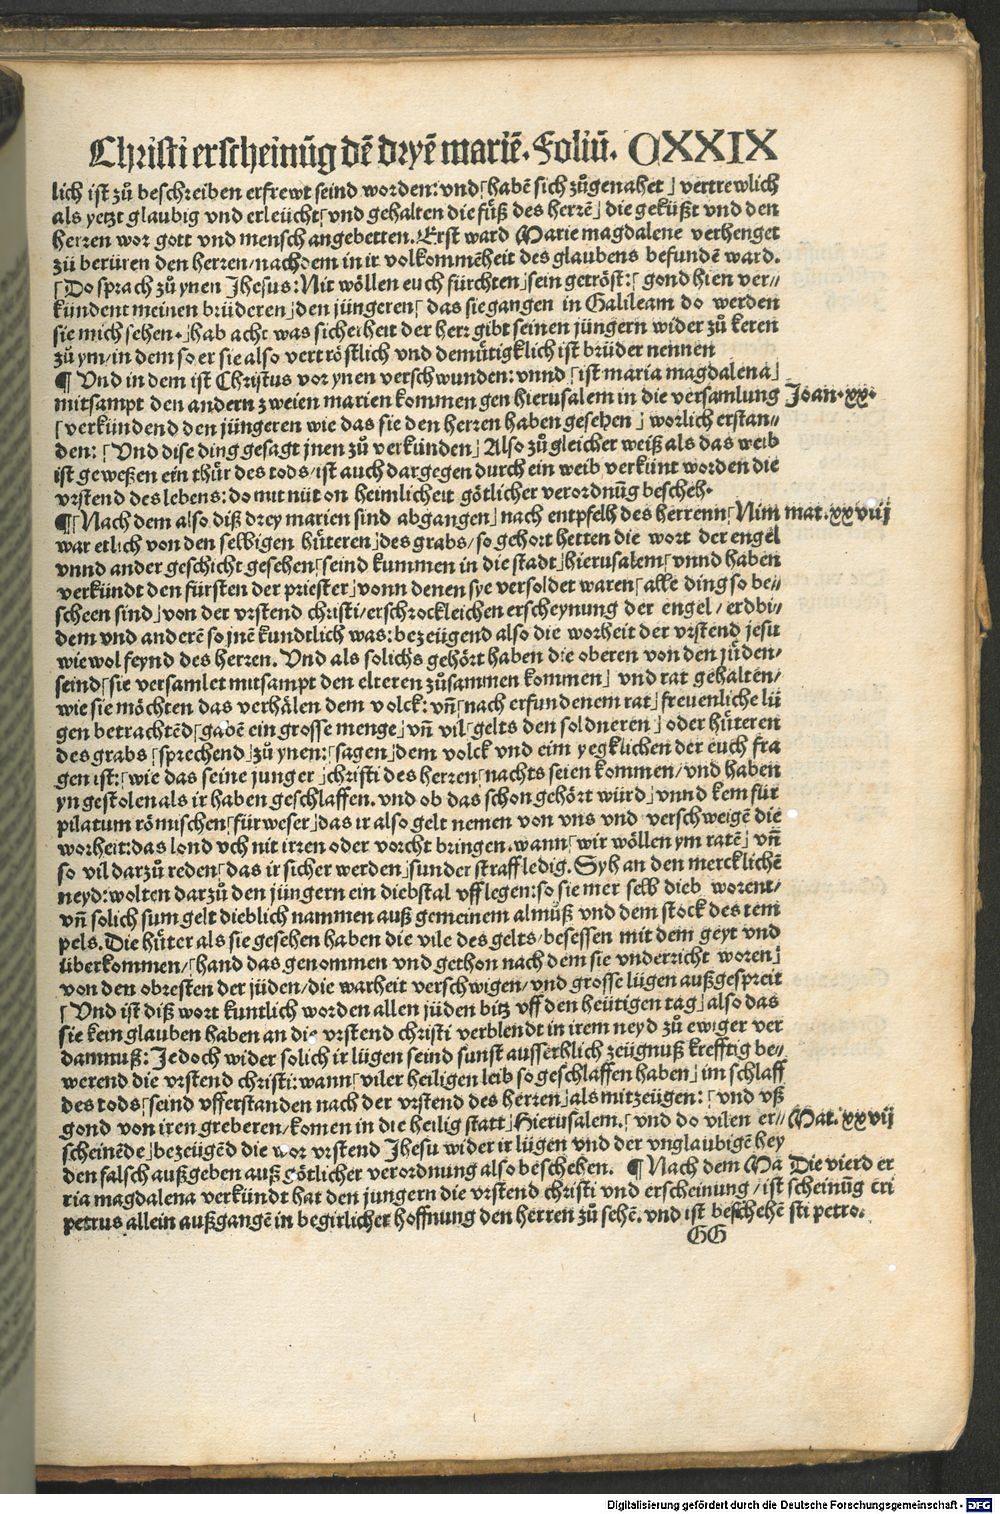 Christi erscheinūg dē dryē mariē. Foliū. CXXIX
lich ist zů beschreiben erfrewt seind worden: vnd ⌈habē sich zůgenahet⌋ vertrewlich
als yetzt glaubig vnd erleücht⌈vnd gehalten die füß des herrē⌋ die geküßt vnd den
herren wor gott vnd mensch angebetten. Erst ward Marie magdalene verhenget
zů berüren den herren/nachdem in ir volkommēheit des glaubens befundē ward.
⌈Do sprach zů ynen Jhesus: Nit wöllen euch fürchten⌋sein getröst: ⌈gond hien ver⸗
kündent meinen brüderen⌋den jüngeren⌈ das sie gangen in Galileam do werden
sie mich sehen.⌋hab acht was sicherheit der herr gibt seinen jüngern wider zů keren
zů ym/in dem so er sie also vertröstlich vnd demütigklich ist brüder nennen
¶ Vnd in dem ist Christus vor ynen verschwunden: vnnd ⌈ist maria magdalena⌋
mitsampt den andern zweien marien kommen gen hierusalem in die versamlung Joan. xx.
⌈verkündend den jüngeren wie das sie den herren haben gesehen⌋ worlich erstan⸗
den: ⌈Vnd dise ding gesagt jnen zů verkünden⌋ Also zů gleicher weiß als das weib
ist geweßen ein thür des tods/ist auch dargegen durch ein weib verkünt worden die
vrstend des lebens: do mit nüt on heimlicheit götlicher verordnūg bescheh.
¶ ⌈Nach dem also diß drey marien sind abgangen⌋ nach entpfelh des herrenn⌈Nim mat. xxviij
war etlich von den selbigen hüteren⌋des grabs/so gehort hetten die wort der engel
vnnd ander geschicht gesehen⌈seind kummen in die stadt⌋hierusalem⌈vnnd haben
verkündt den fürsten der priester⌋vonn denen sye versoldet waren⌈alle ding so be⸗
scheen sind⌋von der vrstend christi/erschrockleichen erscheynung der engel/erdbi⸗
dem vnd anderē so jnē kundtlich was: bezeügend also die worheit der vrstend jesu
wiewol feynd des herren. Vnd als solichs gehört haben die oberen von den jüden⸗
seind⌈sie versamlet mitsampt den elteren zůsammen kommen⌋ vnd rat gehalten/
wie sie möchten das verhälen dem volck: vn̄⌈nach erfundenem rat⌋freuenliche lü
gen betrachtēd⌈gabē ein grosse menge⌋vn̄ vil⌈gelts den soldneren⌋ oder hüteren
des grabs ⌈sprechend⌋zů ynen:⌈sagen⌋dem volck vnd eim yegklichen der euch fra
gen ist:⌈wie das seine junger⌋christi des herren⌈nachts seien kommen/vnd haben
yn gestolen als ir haben geschlaffen. vnd ob das schon gehört würd⌋vnnd kem für
pilatum römischen⌈fürweser⌋das ir also gelt nemen von vns vnd verschweigē die
worheit: das lond vch nit irren oder vorcht bringen. wann⌈wir wöllen ym ratē⌋ vn̄
so vil darzů reden⌈das ir sicher werden⌋sunder straff ledig. Syh an den mercklichē
neyd: wolten darzů den jüngern ein diebstal vff legen: so sie mer selb dieb worent/
vn̄ solich sum gelt dieblich nammen auß gemeinem almůß vnd dem stock des tem
pels. Die hüter als sie gesehen haben die vile des gelts/besessen mit dem geyt vnd
überkommen/⌈hand das genommen vnd gethon nach dem sie vnderricht woren⌋
von den obresten der jüden/die warheit verschwigen/vnd grosse lügen außgespreit
⌈Vnd ist diß wort kuntlich worden allen jüden bitz vff den heütigen tag⌋also das
sie kein glauben haben an die vrstend christi verblendt in irem neyd zů ewiger ver
damnuß: Jedoch wider solich ir lügen seind sunst ausserhlich zeügnuß krefftig be⸗
werend die vrstend christi: wann⌈viler heiligen leib so geschlaffen haben⌋im schlaff
des tods⌈seind vfferstanden nach der vrstend des herren⌋als mitzeügen: ⌈vnd vß
gond von iren greberen/komen in die heilig statt⌋Hierusalem.⌈vnd do vilen er⸗ Mat. xxvij
scheinēde⌋bezeügēd die wor vrstend Jhesu wider ir lügen vnd der vnglaubigē hey
den falsch außgeben auß götlicher verordnung also beschehen. ¶ ⌈Nach dem Ma Die vierd er
ria magdalena verkündt hat den jungern die vrstend christi vnd erscheinung/ist scheinūg cri
petrus allein außgangē in begirlicher hoffnung den herren zů sehē. vnd ist beschehē sti petro.
GG
Digitalisierung gefördert durch die Deutsche Forschungsgemeinschaft - DFG